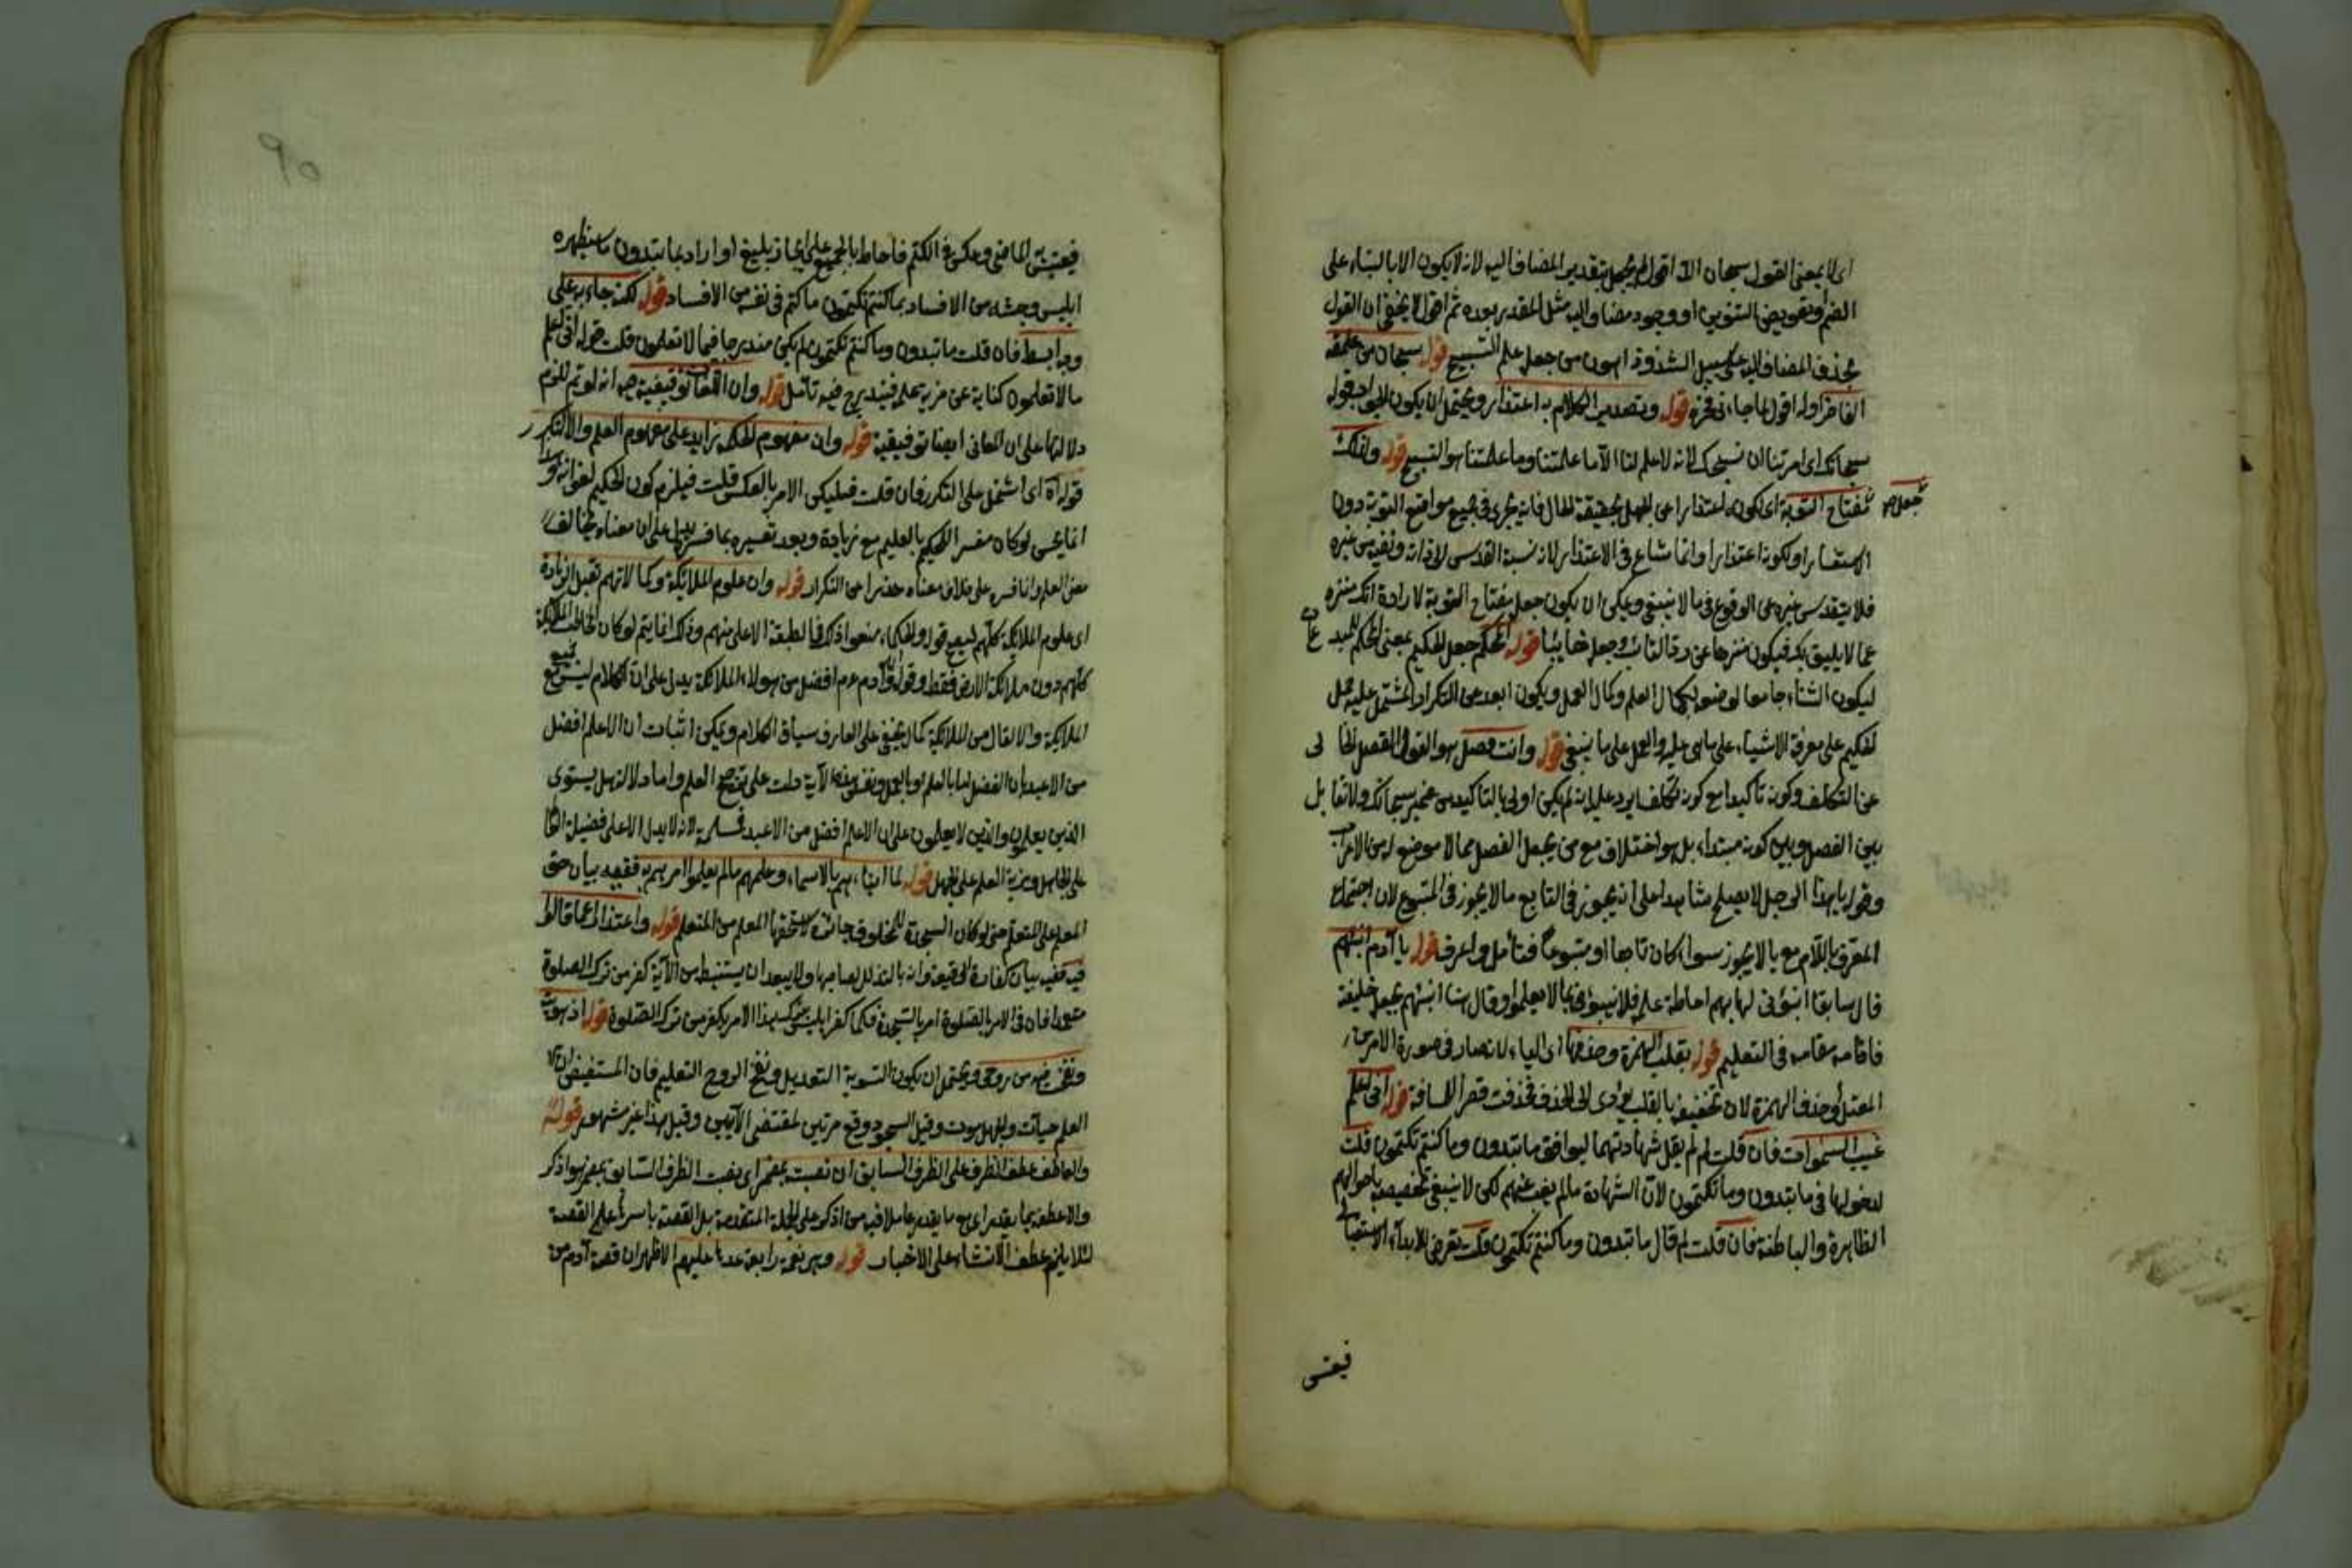 اى لا بمعنى القول سبحان الله اقول لم يجعل بتقدير المضاف اليه لانه لا يكون الا بالبناء على
الضم او تعويض التنوين او وجود مضاف اليه مثل المقدر بعده ثم اقول لا يخفى ان القول
بحذف المضاف اليه على سبيل الشذوذ اهون من جعل علم التسبيح قوله سبحان من علقمة
الفاخر اوله اقول لما جاءنى فخره قوله وتصدير الكلام به اعتذار ويحتمل ان يكون
سبحانك اى امرتنا ان نسبحك لانه لا علم لنا الا ما علمتنا وما علمتنا هو التسبيح قوله ولذلك
جعل صح
مفتاح التوبة اى لكونه اعتذارا عن الجهل بحقيقة الحال فانه يجرى فى جميع مواقع التوبة دون
الاستفسار او لكونه اعتذارا وانما شاع فى الاعتذار لانه نسبة القدس لذاته ونفيه من غيره
فلا يتقدس غيره عن الوقوع فى ما لا ينبغى ويمكن ان يكون جعل مفتاح التوبة لارادة انك منزه
عما لا يليق بك فيكون منزها عن رد التائب وجعل خائبا قوله المحكم جعل الحكيم بمعنى المحكم
ليكون الثناء جامعا لوصفه بكمال العلم وكمال العمل ويكون ابعد من التكرار المشتمل عليه حمل
الحكيم على معرفة الاشياء على ما هى عليه والعمل على ما ينبغى قوله وانت فصل هو القول الفصل الخالى
عن التكلف وكونه تأكيدا مع كونه تكلفا يرد عليه انه لم يكن اولى بالتاكيد من ضمير سبحانك ولا تقابل
بين الفصل وبين كونه مبتداء بل هو اختلاف مع من يجعل الفصل مما لا موضع له من الاعراب
وقوله يا هذا الرجل لا يصلح شاهدا على انه يجوز فى التابع ما لا يجوز فى المتبوع لان اجتماع
المعرف باللام مع يا لا يجوز سواء كان تابعا او متبوعا فتأمل واعرف قوله يا آدم انبئهم
قال سابقا انبئونى لما بهم احاطة علمه فلا ينبئونى بما لا يعلموا وقال هنا انبئهم بجعل خليفة
فاقامه مقامه فى التعليم قوله بقلب الهمزة وحذفها اى الياء لانه صار فى صورة الامر من
المعتل او حذف الهمزة لان تخفيفه بالقلب يؤدى الى الحذف فحذفت قصر المسافة قوله انى اعلم
غيب السموات فان قلت لم لم يقل شهادتهما ليوافق ما تبدون وما كنتم تكتمون قلت
لدخولها فى ما تبدون وما تكتمون لان الشهادة ما لم يغب عنهم لكن لا ينبغى تخصيصه باحوالهم
الظاهرة والباطنة فان قلت لم قال ما تبدون وما كنتم تكتمون قلت
فيعنى
٩٥
الماضى وعكس فى الكتم فاحاط بالجميع على ايجاز بليغ او اراد بما تبدون ما سيظهره
ابليس وجنه من الافساد بما كنتم تكتمون ما كتم فى نفسه من الافساد قوله لكنه جاء به على
وجه ابسط فان قلت ما تبدون وما كنتم تكتمون لم يكن مندرجا فيما لا تعلمون قلت قوله انى اعلم
ما لا تعلمون كناية عن مزية علمه فيندرج فيه تأمل قوله وان اللغات توقيفية فيه انه لو تم للزم
دلالتها على ان المعانى ايضا توقيفية قوله وان مفهوم الحكمة زايد على مفهوم العلم والا لتكرر
قوله آه اى اشتمل على التكرر فان قلت فليكن الامر بالعكس قلت فيلزم كون الحكيم لغوا
انما يحسن لو كان مفسر الحكيم بالعليم مع زيادة وبعد تفسيره بما فسر يدل على ان معناه يخالف
معنى العلم وانما فسره على خلاف معناه حذرا من التكرار قوله وان علوم الملائكة وكمالاتهم تقبل الزيادة
اى علوم الملائكة كلهم ليصح قوله والحكماء منعوا ذلك فى الطبقة الاعلى منهم وذلك انما يتم لو كان المخاطب الملائكة
كلهم دون ملائكة الارض فقط وقوله وآدم عم افضل من هؤلاء الملائكة يدل على ان الكلام ليس مع جميع
الملائكة والا لقال من الملائكة كما لا يخفى على العارف سياق الكلام ويمكن اثبات ان الاعلم افضل
من الاعبد بان الفضل اما بالعلم او بالعمل ونفس هذه الآية دلت على ترجيح العلم واما دلالة هل يستوى
الذين يعلمون والذين لا يعلمون على ان الاعلم افضل من الاعبد لانه لا يدل الا على فضيلة العالم
على الجاهل ومزية العلم على الجهل قوله لما انبأهم بالاسماء وعلمهم ما لم يعلموا امرهم به ففيه بيان حق
المعلم على المتعلم حتى لو كان السجدة للمخلوق جائزة لاستحقها المعلم من المتعلم قوله واعتذارا عما قالوا
فيه ففيه بيان كفارة الخفيفة وانه بالتذلل لصاحبها ولا يبعد ان يستنبط من الآية كفر من ترك الصلوة
عمدا فان فى الامر بالصلوة امر بالسجدة فكما كفر ابليس بترك هذا الامر يكفر من ترك الصلوة قوله اذ سويته
ونفخت فيه من روحى ويحتمل ان يكون التسوية التعديل ونفخ الروح التعليم فان المستفيض ان
العلم حيات والجهل موت وقيل السجود وقع مرتين لمقتضى الآيتين وقيل هذا غير مشهور قوله
والعاطف عطف الظرف على الظرف السابق ان نصبت بمضمر اى نصبت الظرف السابق بمضمر هو اذكر
والا عطفه بما يقدر اى مع ما يقدر عاملا فيه من اذكر على الجملة المتقدمة بل القصة باسرها على القصة
لئلا يلزم عطف الانشاء على الاخبار قوله وهى نعمة رابعة عدها عليهم الاظهر ان قصة آدم من